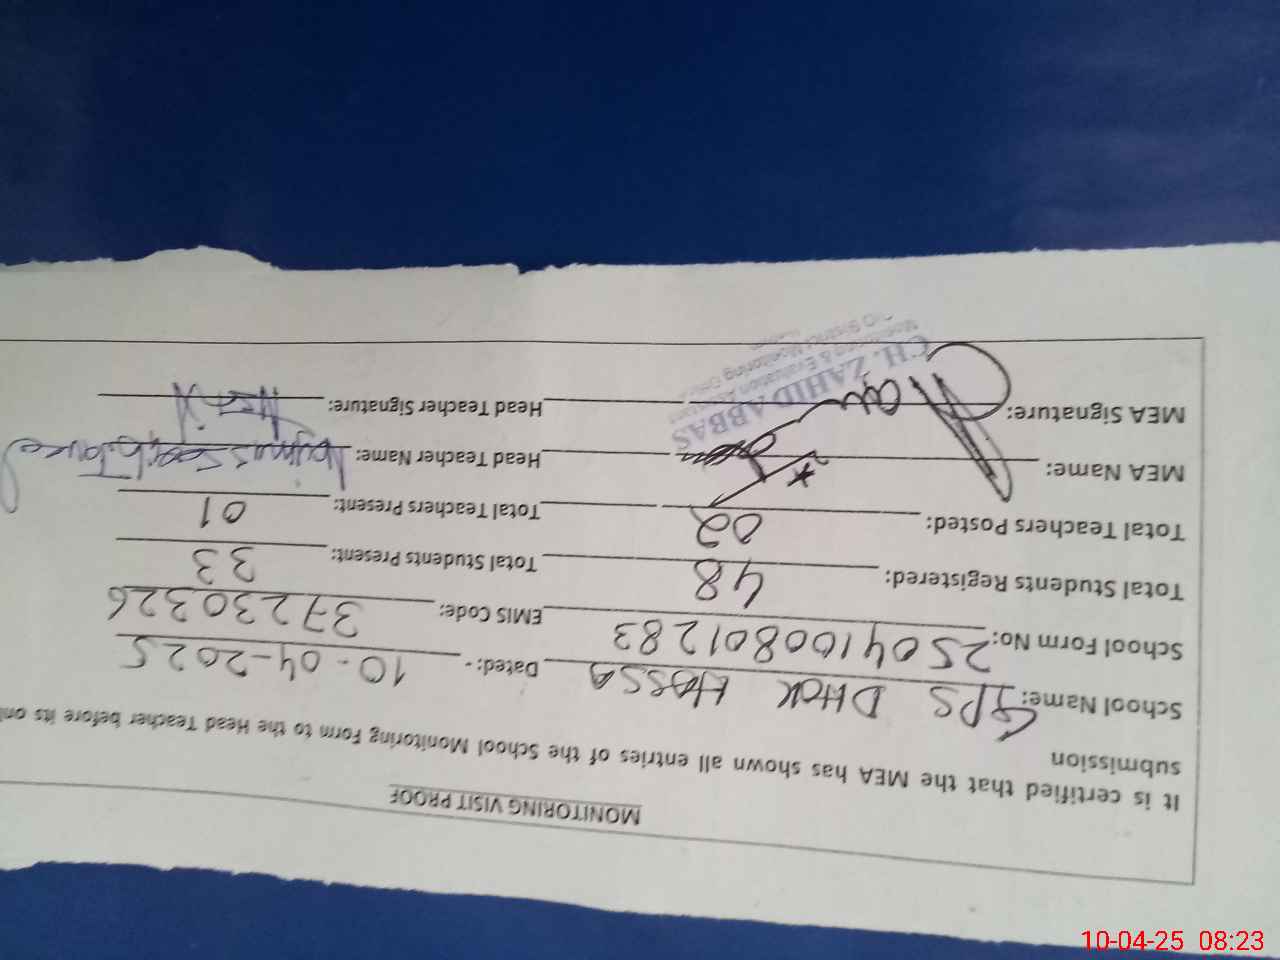 MONITORING VISIT PROOF
It is certified that the MEA has shown all entries of the School Monitoring Form to the Head Teacher before its
submission
School Name: GPS DHOK HASSA Dated: - 10-04-2025
School Form No: 2504100801283 EMIS Code: 37230326
Total Students Registered: 48 Total Students Present: 33
Total Teachers Posted: 02 Total Teachers Present: 01
MEA Name: Head Teacher Name:
MEA Signature: Head Teacher Signature:
CH. ZAHID ABBAS
Monitoring & Evaluation
District Monitoring
10-04-25 08:23